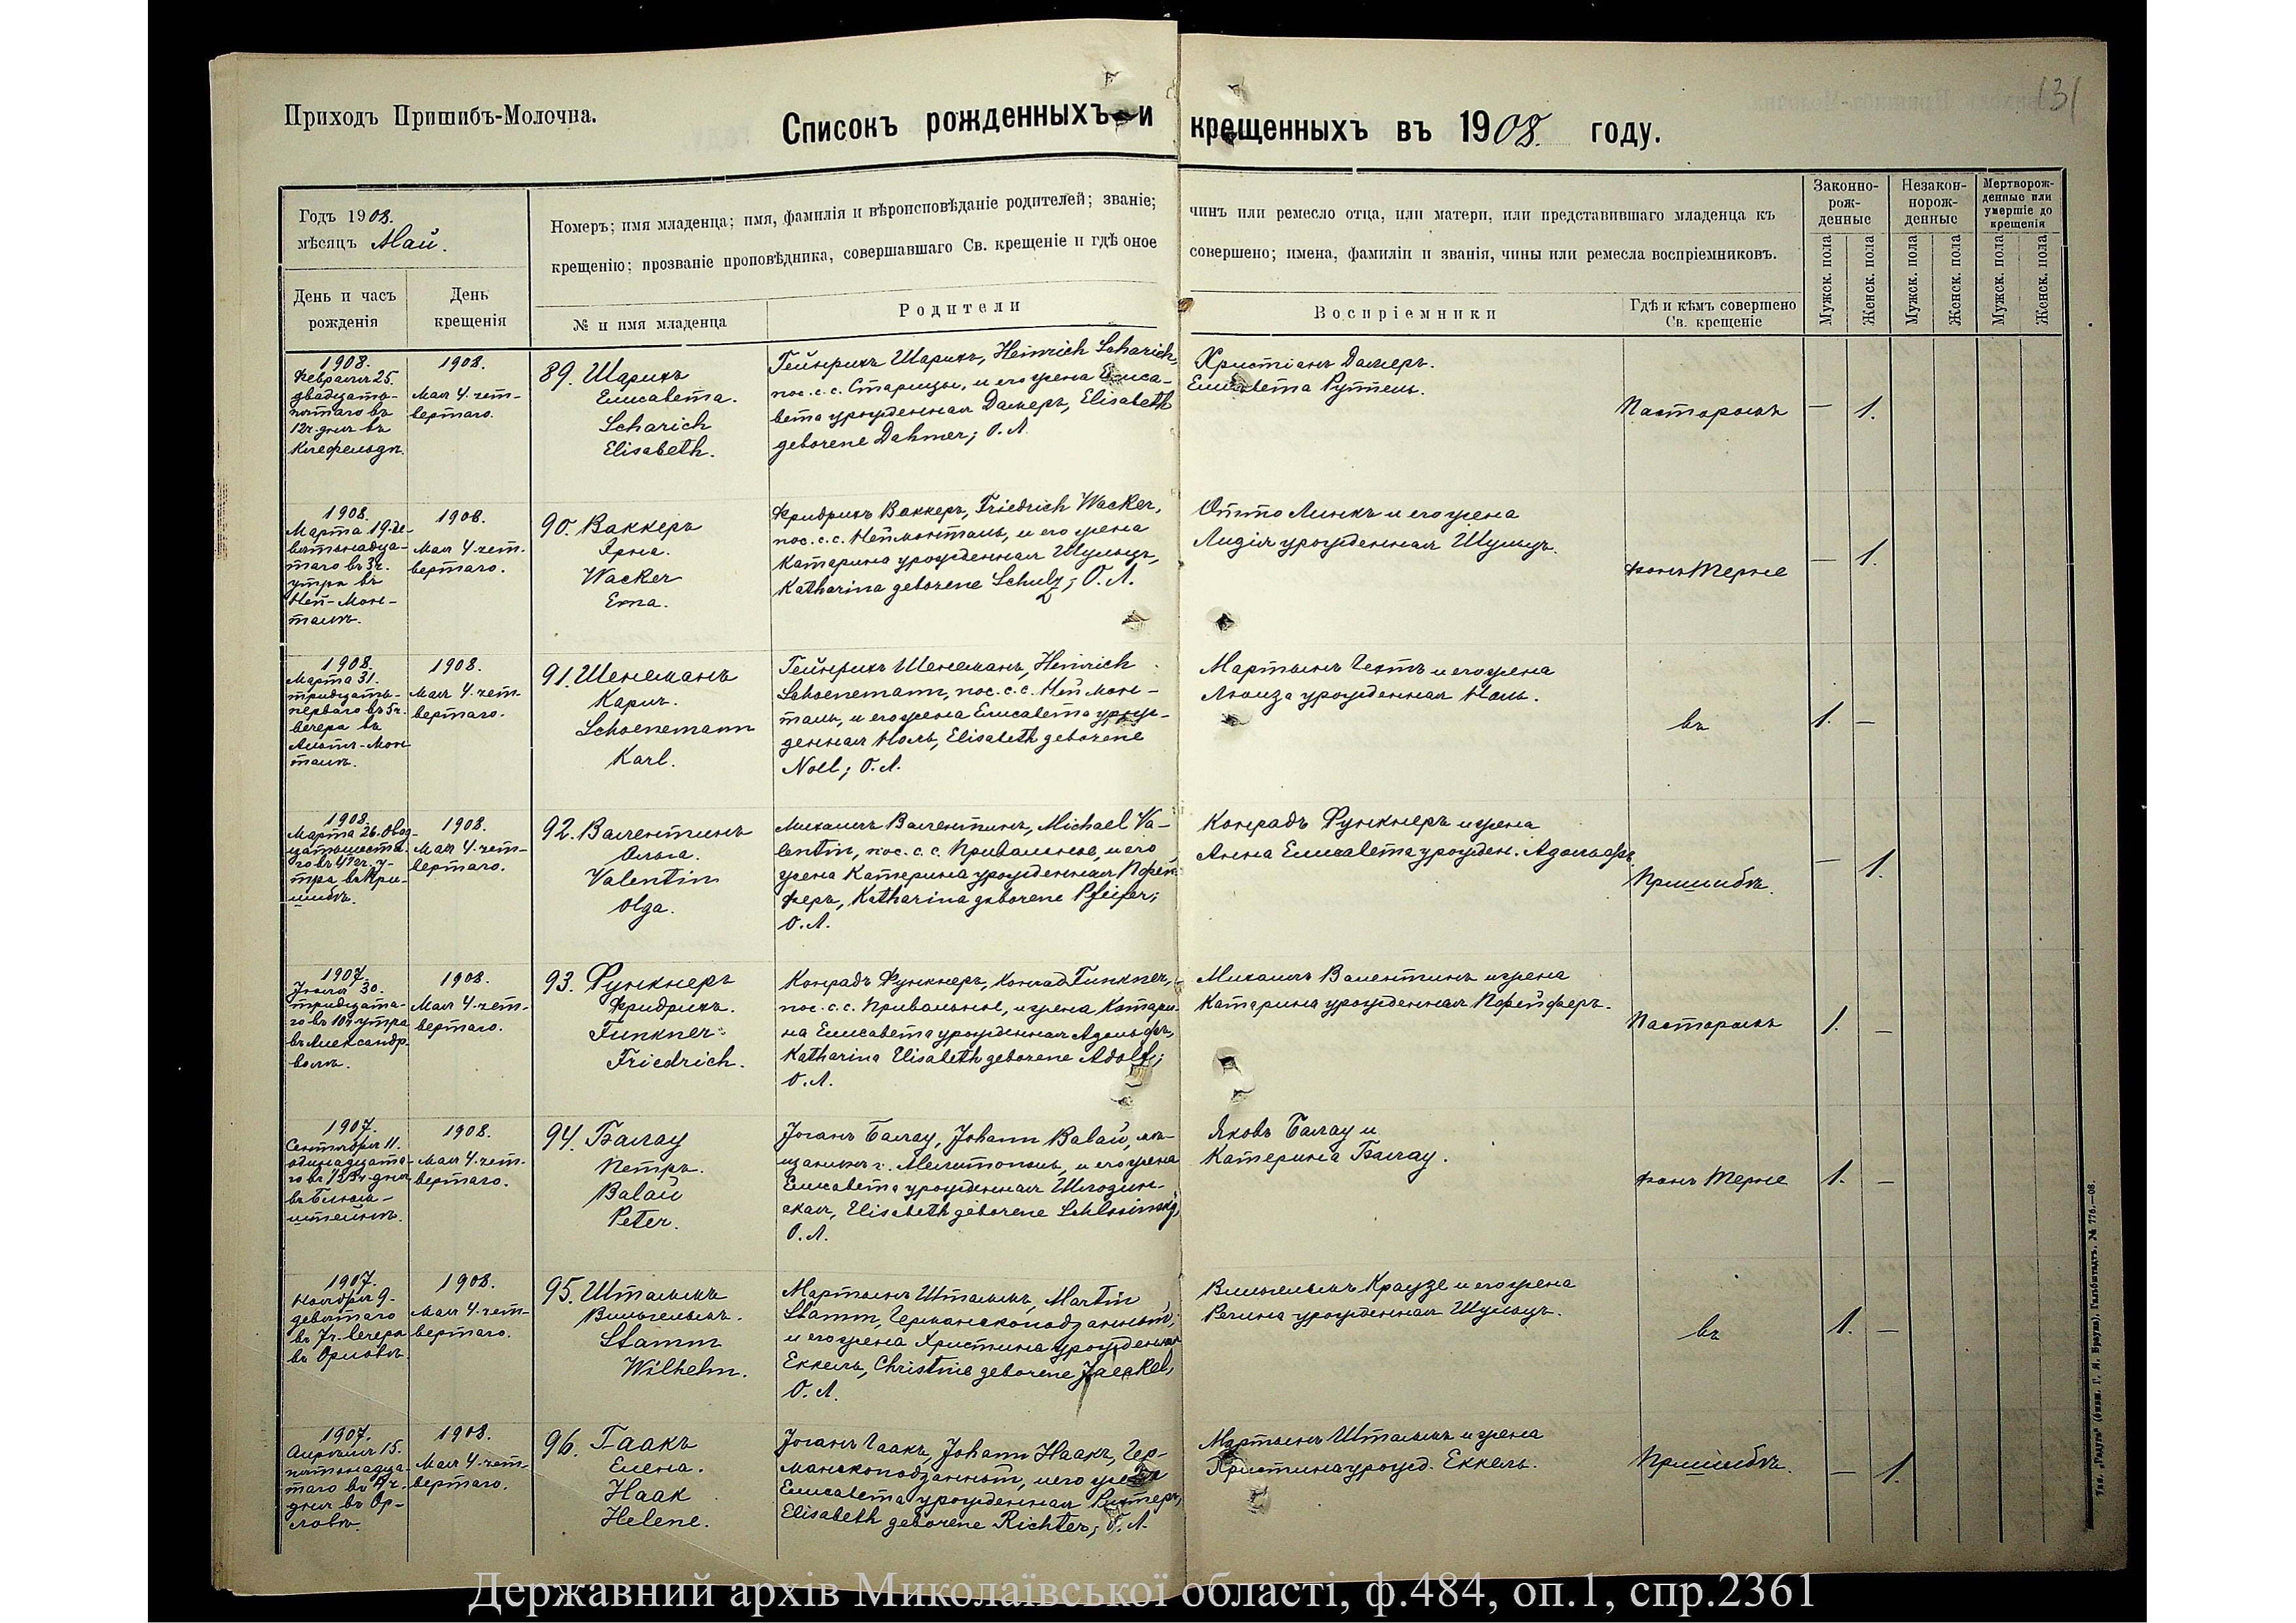 131
Приходъ Пришибъ-Молочна.
Списокъ рожденныхъ и крещенныхъ въ 1908. году.
Годъ 1908.
мѣсяцъ Май.
Номеръ; имя младенца; имя, фамилія и вѣроисповѣданіе родителей; званіе;
крещенію; прозваніе проповѣдника, совершавшаго Св. крещеніе и гдѣ оное
чинъ или ремесло отца, или матери, или представившаго младенца къ
совершено; имена, фамиліи и званія, чины или ремесла воспріемниковъ.
Законно-
рож-
денные
Незакон-
норож-
денные
Мертворож-
денные или
умершіе до
крещенія
День и часъ
рожденія
День
крещенія
№ и имя младенца
Родители
Воспріемники
Гдѣ и кѣмъ совершено
Св. крещеніе
Мужск. пола
Женск. пола
Мужск. пола
Женск. пола
Мужск. пола
Женск. пола
1908.
Февраля 25.
двадцато-
пятаго въ
12 ч. дня въ
Клефельдѣ.
1908.
Мая 4. чет-
вертаго.
89. Шарихъ
Елисавета.
Scharich
Elisabeth.
Гейнрихъ Шарихъ, Heinrich Scharich,
пос. с. с. Старицы, и его жена Елиса-
вета урожденная Дамеръ, Elisabeth
geborene Dahmer; О. Л.
Христіанъ Дамеръ.
Елисавета Руппель.
Пасторомъ
— 1.
1908.
Марта 19. де-
вятьнадца-
таго въ 3 ч.
утра въ
Ней-Мон-
талѣ.
1908.
Мая 4. чет-
вертаго.
90. Ваккеръ
Эрна.
Wacker
Erna.
Фридрихъ Ваккеръ, Friedrich Wacker,
пос. с. с. Нейменталь, и его жена
Катарина урожденная Шульцъ,
Katharina geborene Schulz; О. Л.
Отто Линкъ и его жена
Лидія урожденная Шульцъ.
фонъ Терне
— 1.
1908.
Марта 31.
тридцать-
перваго въ 5 ч.
вечера въ
Альтъ-Мон-
талѣ.
1908.
Мая 4. чет-
вертаго.
91. Шенеманъ
Карлъ.
Schoenemann
Karl.
Гейнрихъ Шенеманъ, Heinrich
Schoenemann, пос. с. с. Ней мон-
таль, и его жена Елисавета урож-
денная Ноль, Elisabeth geborene
Noll; О. Л.
Мартынъ Гехтъ и его жена
Луиза урожденная Ноль.
въ
1. —
1908.
Марта 26. двад-
цатьшеста-
го въ 4 ч. у-
тра въ При-
шибѣ.
1908.
Мая 4. чет-
вертаго.
92. Валентинъ
Ольга.
Valentin
Olga.
Михаилъ Валентинъ, Michael Va-
lentin, пос. с. с. Привальное, и его
жена Катерина урожденная Пфей-
феръ, Katharina geborene Pfeifer;
О. Л.
Конрадъ Функнеръ и жена
Анна Елисавета урожден. Адольфъ.
Пришибѣ.
— 1.
1907.
Іюля 30.
тридцата-
го въ 10 ч. утра
въ Александр-
волѣ.
1908.
Мая 4. чет-
вертаго.
93. Функнеръ
Фридрихъ.
Funkner
Friedrich.
Конрадъ Функнеръ, Konrad Funkner,
пос. с. с. Привальное, и жена Катари-
на Елисавета урожденная Адольфъ,
Katharina Elisabeth geborene Adolf;
О. Л.
Михаилъ Валентинъ и жена
Катарина урожденная Пфейферъ.
Пасторомъ
1. —
1907.
Сентября 11.
одинадцата-
го въ 12 ч. дня
въ Блюм-
штейнѣ.
1908.
Мая 4. чет-
вертаго.
94. Балау
Петръ.
Balau
Peter.
Іоганъ Балау, Johann Balau, мѣ-
щанинъ г. Мелитополь, и его жена
Елисавета урожденная Шлозин-
ская, Elisabeth geborene Schlosinsky;
О. Л.
Яковъ Балау и
Катерина Балау.
фонъ Терне
1. —
1907.
Ноября 9.
девятаго
въ 7 ч. вечера
въ Орловѣ.
1908.
Мая 4. чет-
вертаго.
95. Штаммъ
Вильгельмъ.
Stamm
Wilhelm.
Мартынъ Штаммъ, Martin
Stamm, Германскоподданный,
и его жена Христина урожденная
Еккель, Christine geborene Jaeckel,
О. Л.
Вильгельмъ Краузе и его жена
Регина урожденная Шульцъ.
въ
1. —
1907.
Апрѣля 15.
пятьнадца-
таго въ ч.
дня въ Ор-
ловѣ.
1908.
Мая 4. чет-
вертаго.
96. Гаакъ
Елена.
Haak
Helene.
Іоганъ Гаакъ, Johann Haak, Гер-
манскоподданный, и его жена
Елисавета урожденная Рихтеръ,
Elisabeth geborene Richter; О. Л.
Мартынъ Штаммъ и жена
Христина урожд. Еккель.
Пришибѣ.
— 1.
Тип. „Радуга“ (бывш. Г. Я. Брауна), Гальбштадтъ. № 776.—08.
Державний архів Миколаївської області, ф.484, оп.1, спр.2361